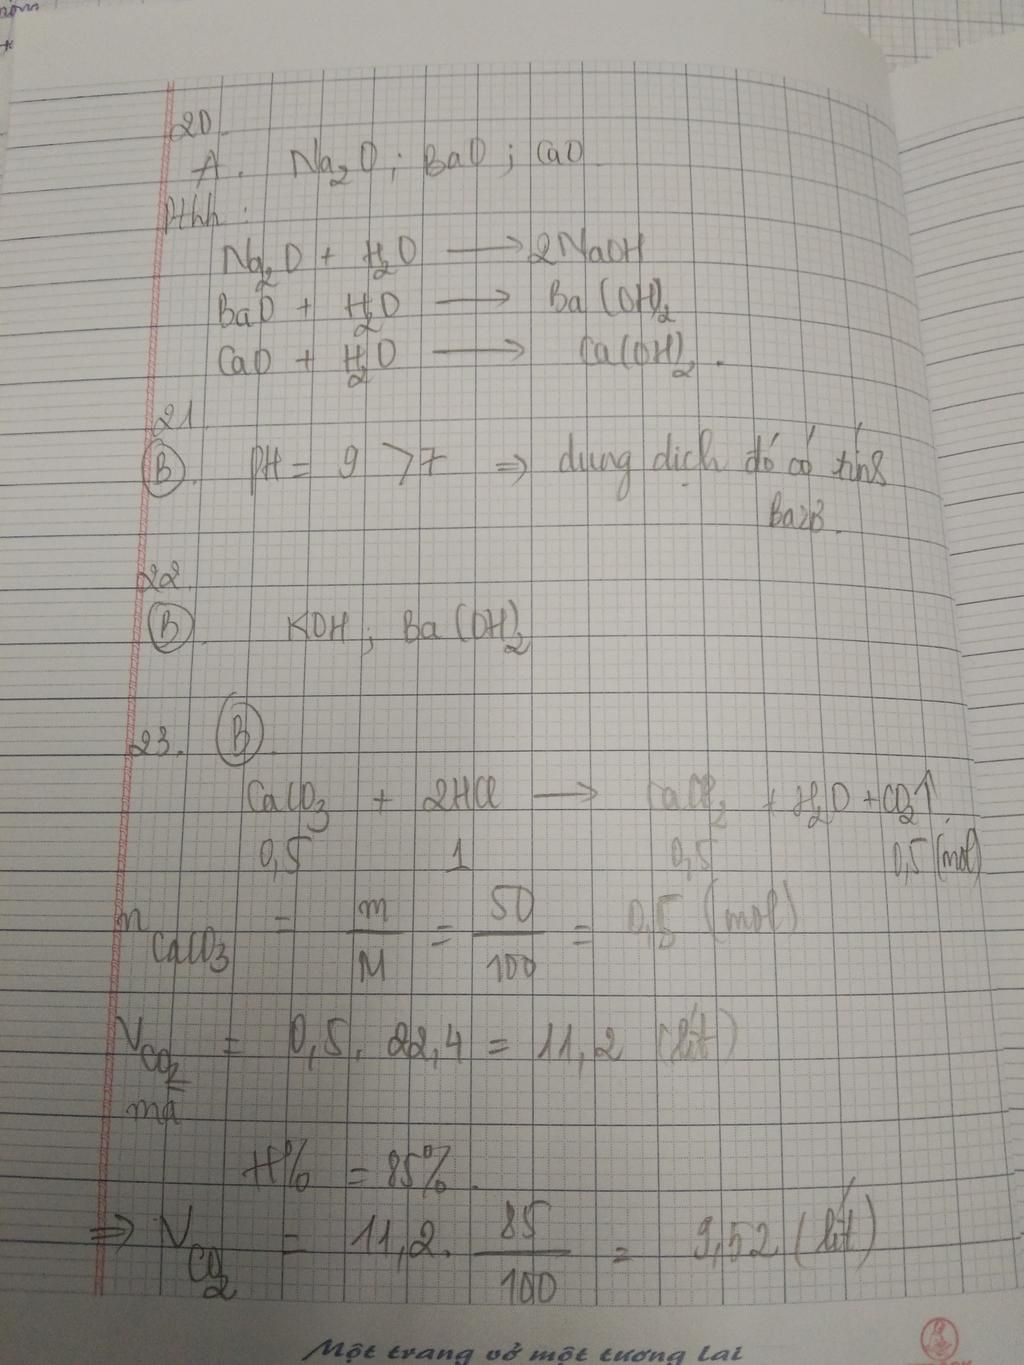 20.
A. Na₂O ; BaO ; CaO
Pthh :
Na₂O + H₂O ⟶ 2NaOH
BaO + H₂O ⟶ Ba(OH)₂
CaO + H₂O ⟶ Ca(OH)₂.
21.
B. PH = 9 > 7 ⇒ dung dịch đó có tính
Bazơ.
22.
B. KOH ; Ba(OH)₂
23. B.
CaCO₃ + 2HCl ⟶ CaCl₂ + H₂O + CO₂↑
0,5 1 0,5 0,5 (mol)
n CaCO₃ = m/M = 50/100 = 0,5 (mol)
V CO₂ = 0,5. 22,4 = 11,2 (lít)
mà
H% = 85%.
⇒ V CO₂ = 11,2. 85/100 = 9,52 (lít)
Một trang vở một tương lai